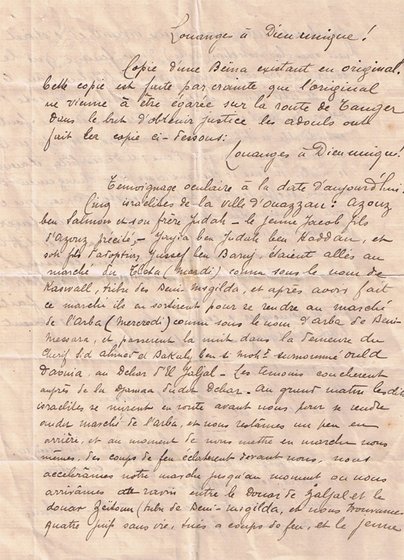 Louanges à Dieu unique!
Copie d'une Beina existant en original.
Cette copie est faite par crainte que l'original
ne vienne à être égarée sur la route de Tanger
Dans le but d'obtenir justice les adouls ont
fait ler copie ci-dessous:
Louanges à Dieu unique!
Témoignage oculaire à la date d'aujourd'hui
Cinq israélites de la ville d'Ouazzan: Azouz
ben Salmon et son frère Judah - le jeune Jacob fils
d'Azouz précité, - Yahia ben Judah ben Haddan, et
son fils d'adoption, Yussef ben Barry, étaient allés au
marché du Tleta (mardi) connu sous le nom de
tribu des Beni Msgilda, et après avoir fait
ce marché ils en sortirent pour se rendre au marché
de l'Arba (Mercredi) connu sous le nom d'arba de Beni-
Messara, et passèrent la nuit dans la demeure du
Cherif Sid Ahmed el Bakali ben S. Moh'd surnommé ould
au Dchar d'El Galjal. - Les témoins couchèrent
auprès de la Djamaa dudit Dchar. - Au grand matin lesdits
israélites se mirent en route avant nous pour se rendre
audit marché de l'arba, et nous restâmes un peu en
arrière, et au moment de nous mettre en marche nous
mêmes, des coups de feu eclatèrent devant nous, nous
accelerâmes notre marche jusqu'au moment où nous
arrivâmes au ravin entre le Douar de Galjal et le
douar Zeitoun (tribu de Beni-Msgilda, et nous trouvâmes
quatre juifs sans vie, tués a coups de feu, et le jeune